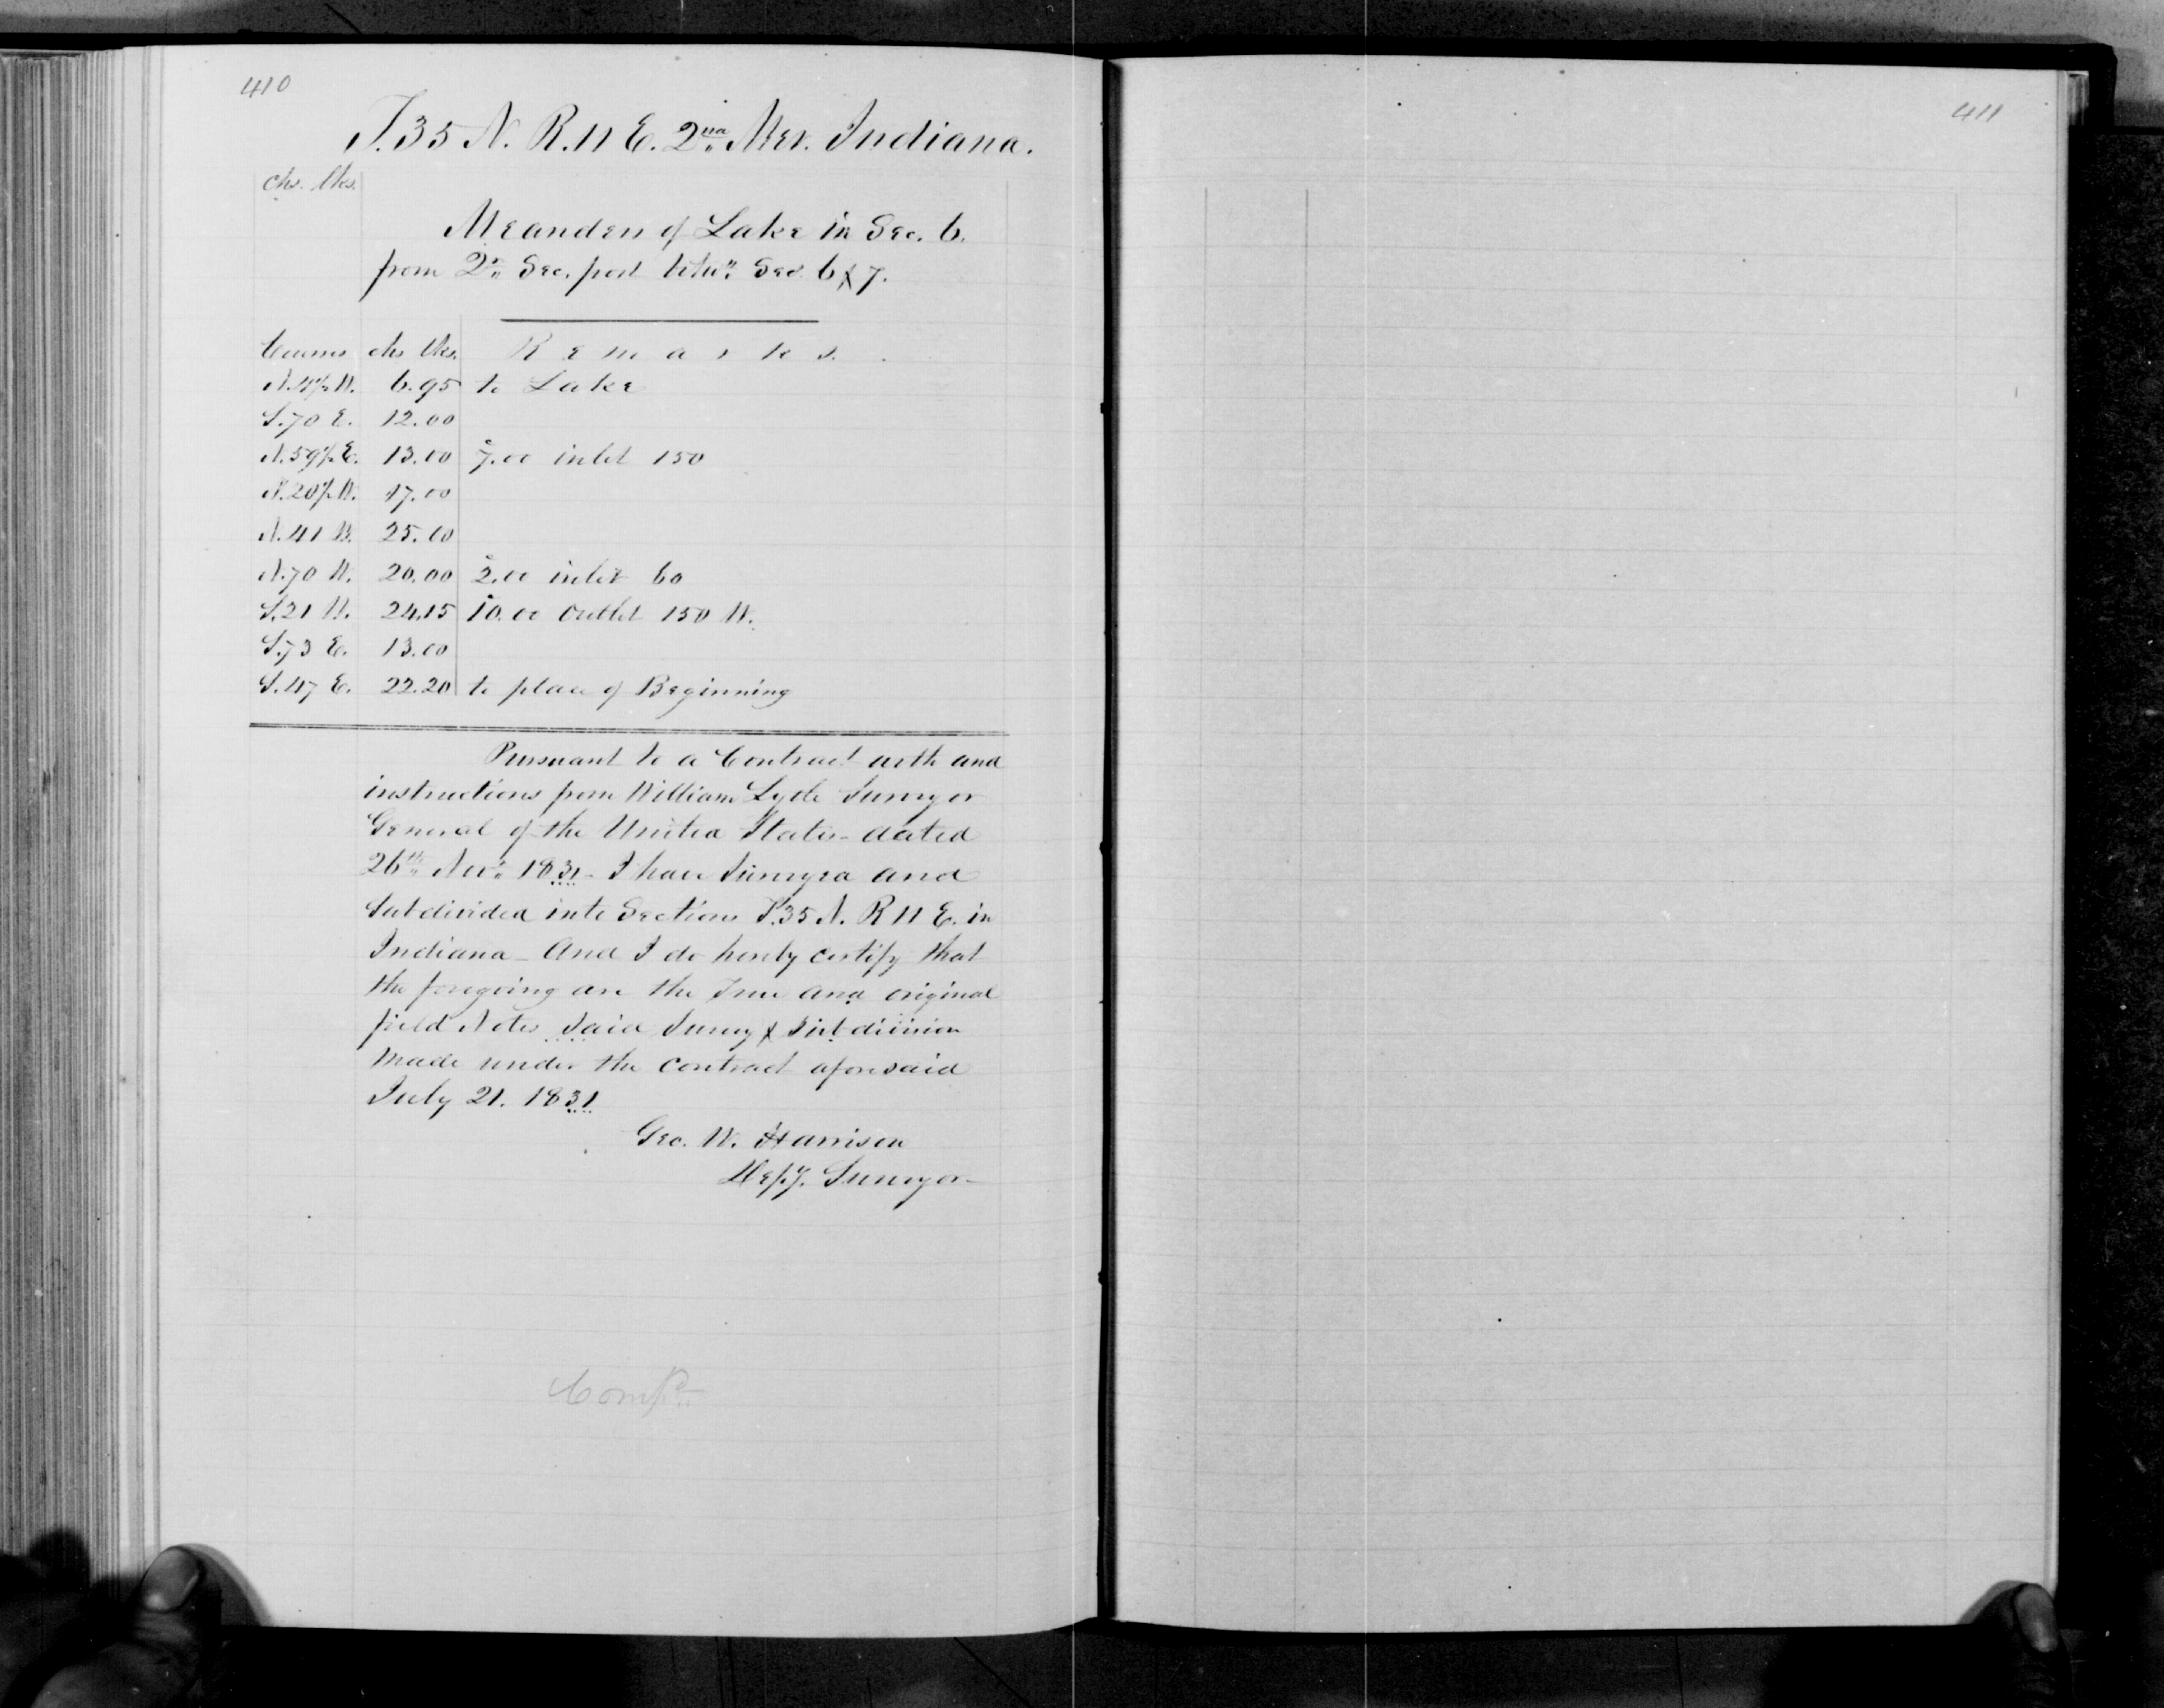 410
T.35 N. R.11 E. 2nd Mer. Indiana.
chs. lks.
Meanders of Lake in Sec. 6.
from Qr. Sec. post betwn. Secs. 6 & 7.
Courses chs lks. Remarks.
N.4½W. 6.95 to Lake
S.70 E. 12.00
N.59½E. 13.00 7.00 inlet 150
N.20½W. 17.00
N.41 W. 25.00
N.70 W. 20.00 2.00 inlet 60
S.21 W. 24.15 10.00 outlet 150 W.
S.73 E. 13.00
S.47 E. 22.20 to place of Beginning
Pursuant to a Contract with and
instructions from William Lytle Surveyor
General of the United States - dated
26th Nov. 1831 - I have Surveyed and
Subdivided into Sections T.35 N. R 11 E. in
Indiana - And I do hereby certify that
the foregoing are the True and original
field Notes Said Survey & Subdivision
Made under the contract aforesaid
July 21. 1831
Geo. W. Harrison
Depy. Surveyor
Compd.
411